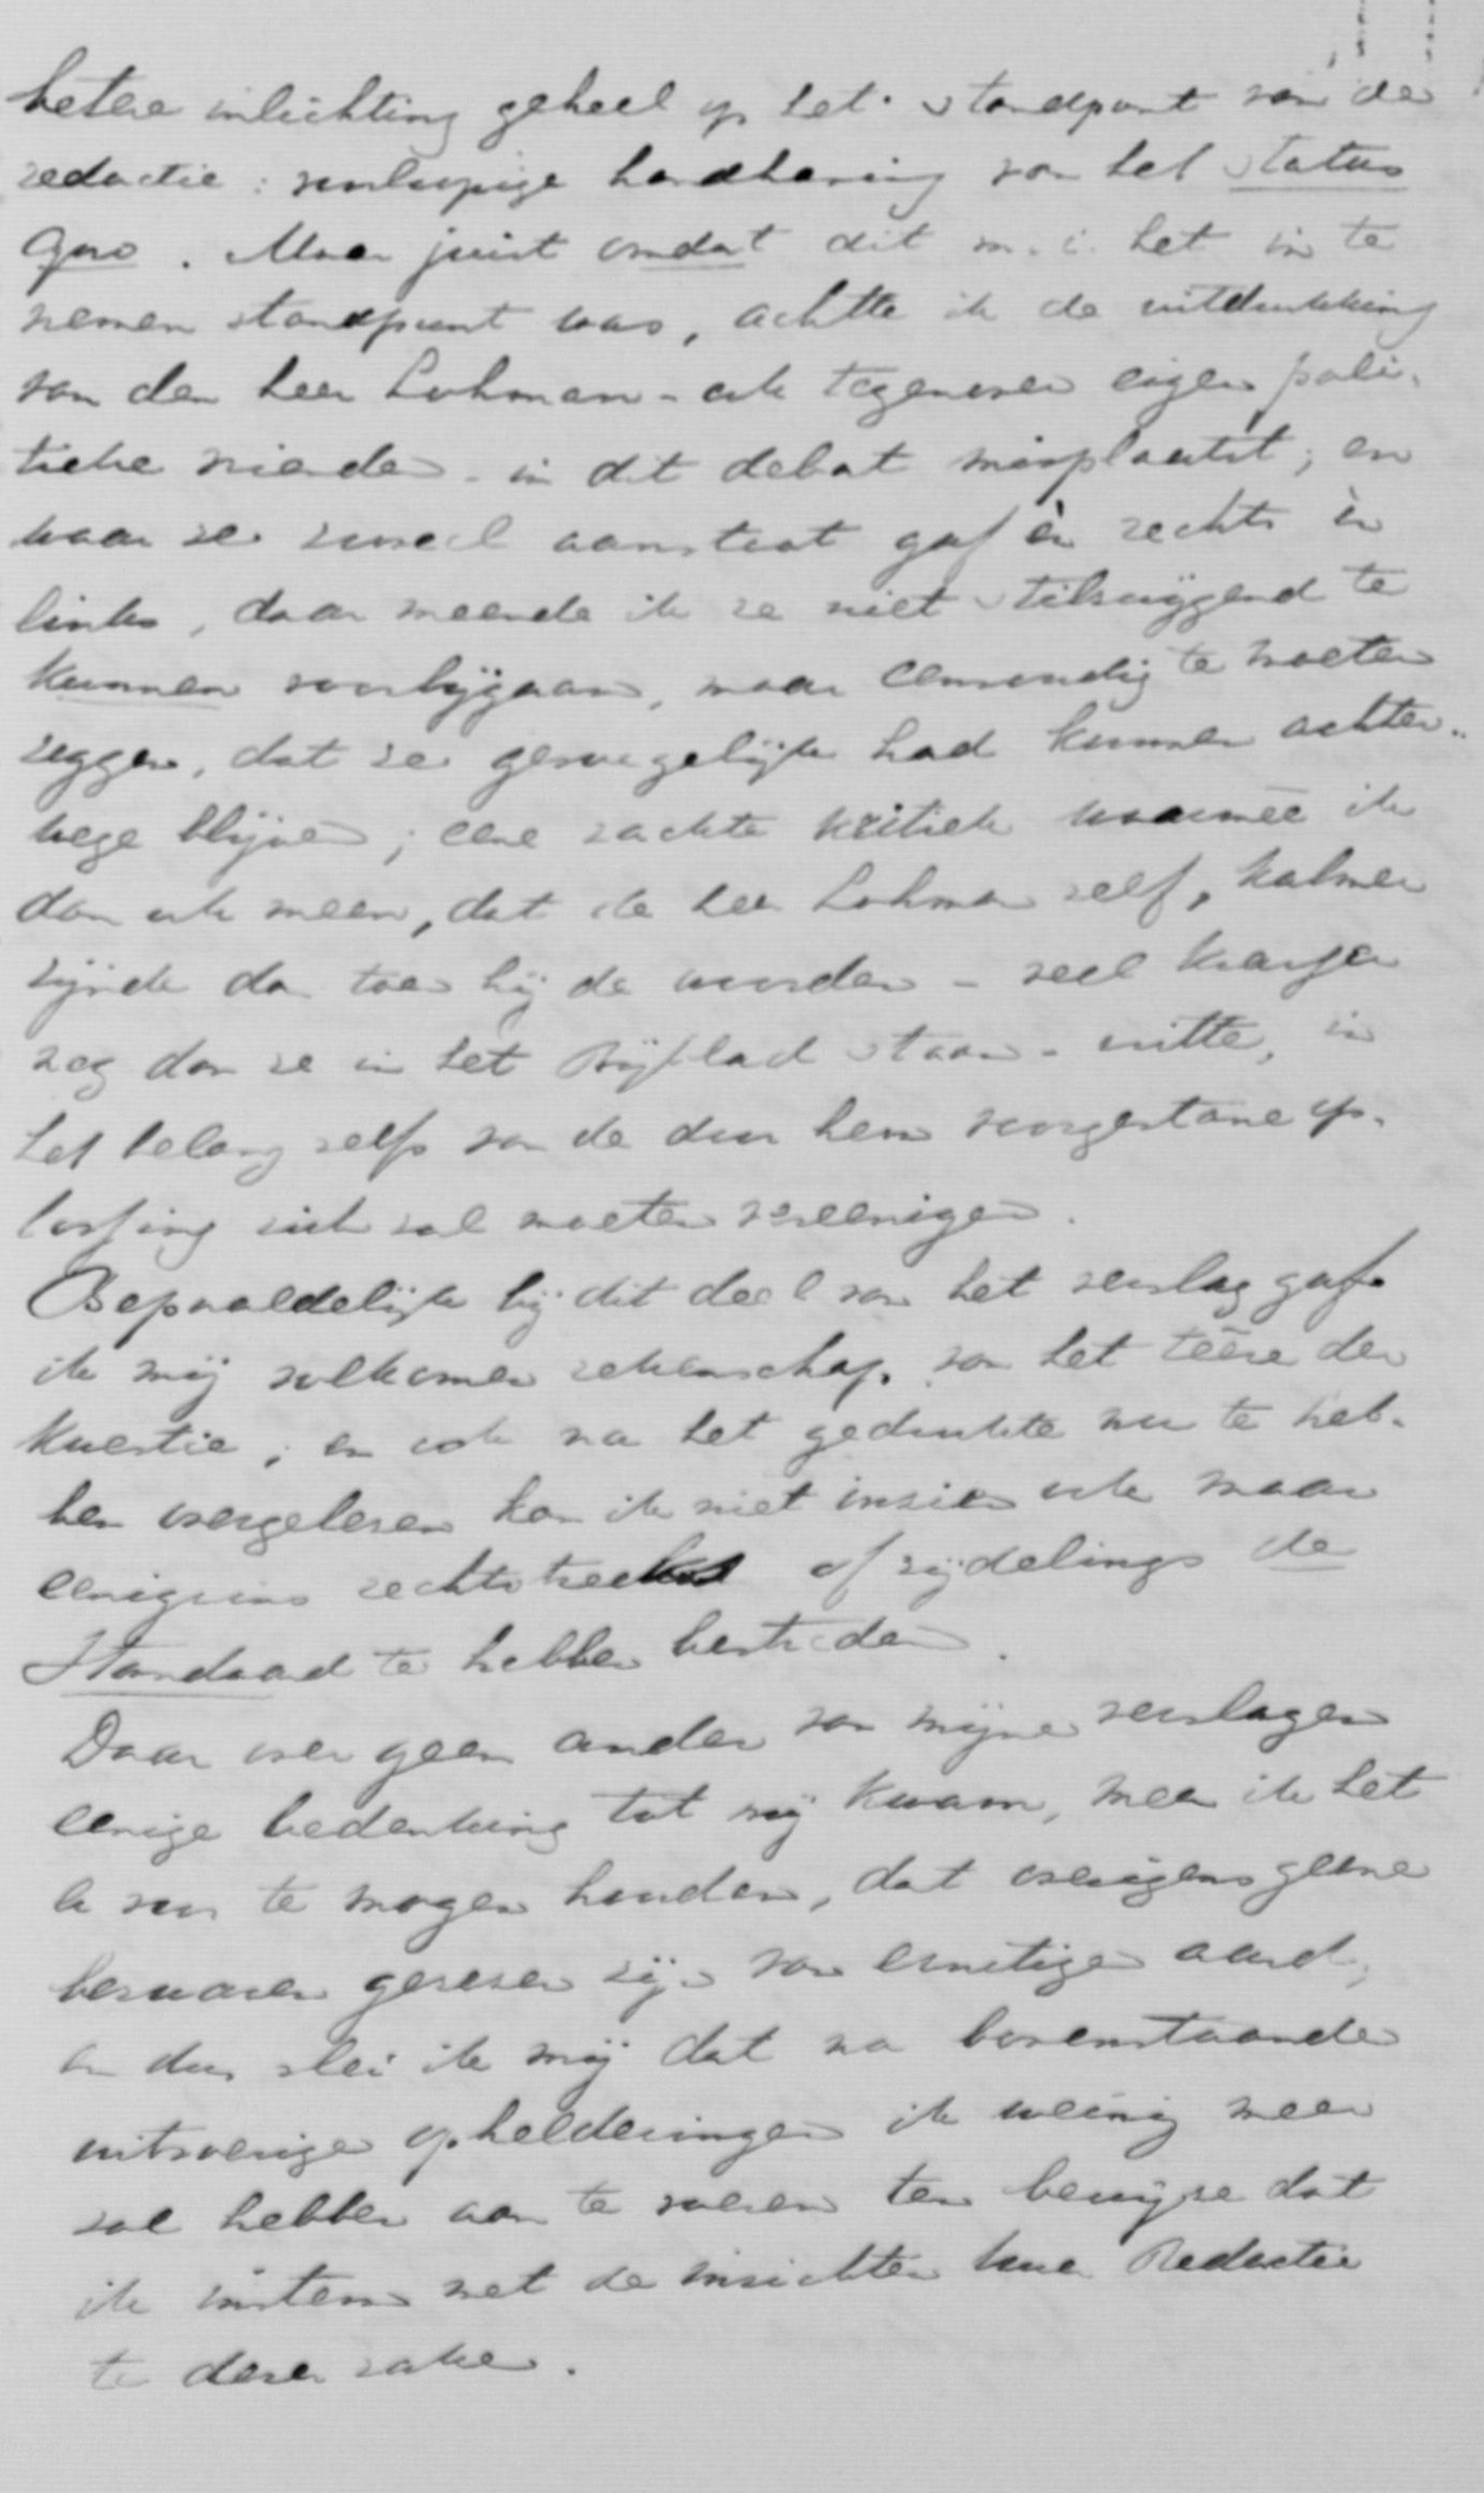 betere inlichting geheel op het standpunt van de
redactie: voorloopige handhaving van het status
quo. Maar juist omdat dit m.i. het in te
nemen standpunt was, achtte ik de uitdrukking
van den heer Lohman - ook tegenover eigen poli-
tieke vrienden - in dit debat misplaatst; en
waar ze zooveel aanstoot gaf èn rechts èn
links, daar meende ik ze niet stilzwijgend te
kunnen voorbijgaan, maar eenvoudig te moeten
zeggen, dat ze gevoegelijk had kunnen achter-
wege blijven; eene zachte kritiek waarmeê ik
dan ook meen, dat de heer Lohman zelf, kalmer
zijnde dan toen hij de woorden - veel krasser
nog dan ze in het Bijblad staan - uitte, in
het belang zelfs van de door hem voorgestane op-
lossing zich zal moeten vereenigen.
Bepaaldelijk bij dit deel van het verslag gaf
ik mij volkomen rekenschap van het téére der
kwestie; en ook na het gedrukte nu te heb-
ben overgelezen kan ik niet inzien ook maar
eenigzins rechtstreeks of zijdelings de
Standaard te hebben bestreden.
Daar over geen ander van mijne verslagen
eenige bedenking tot mij kwam, meen ik het
er voor te mogen houden, dat overigens geene
bezwaren gerezen zijn van ernstigen aard,
en dus vlei ik mij dat na bovenstaande
uitvoerige ophelderingen ik weinig meer
zal hebben aan te voeren ten bewijze dat
ik instem met de inzichten Uwer Redactie
te dezer zake.